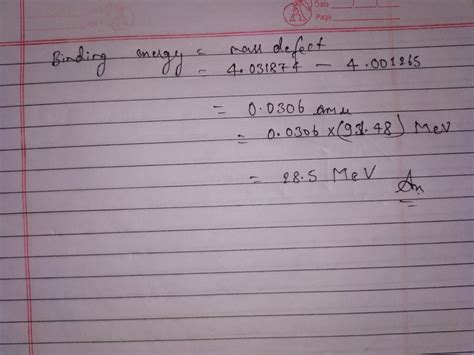 Date
Page
Binding energy = mass defect
= 4.031874 - 4.001265
= 0.0306 amu
= 0.0306 x (931.48) MeV
= 28.5 MeV Ans